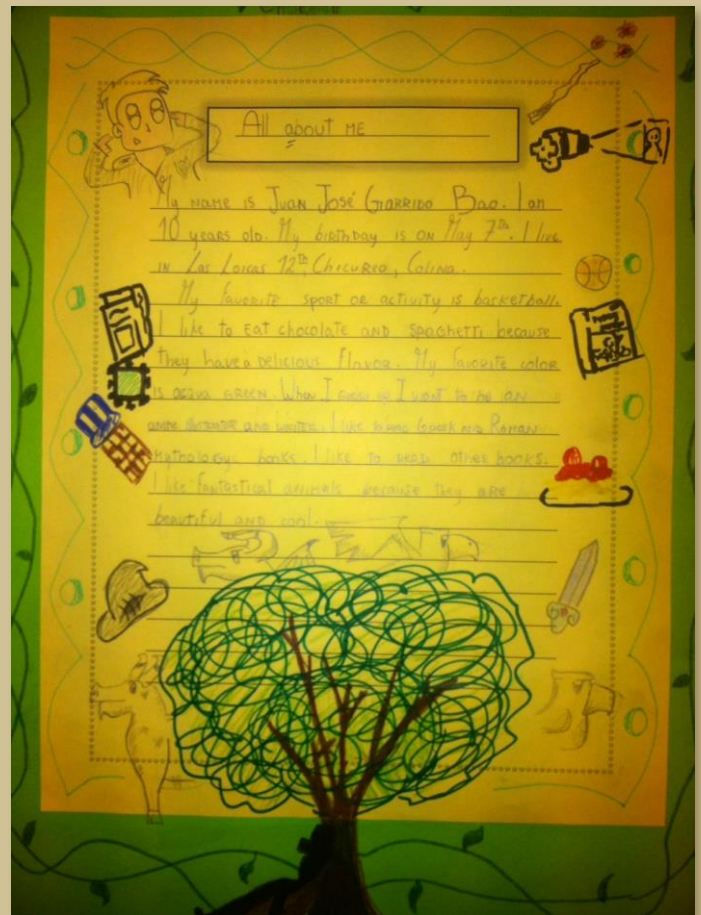 All about ME
My name is Juan José Garrido Bao. I am
10 years old. My birthday is on May 7th. I live
in Las Loicas 12th, Chicureo, Colina.
My favorite sport or activity is basketball.
I like to eat chocolate and spaghetti because
they have a delicious flavor. My favorite color
is acqua green. When I grow up I want to be an
anime illustrator and writer. I like to read Greek and Roman
mythology books. I like to read other books.
I like fantastical animals because they are
beautiful and cool.